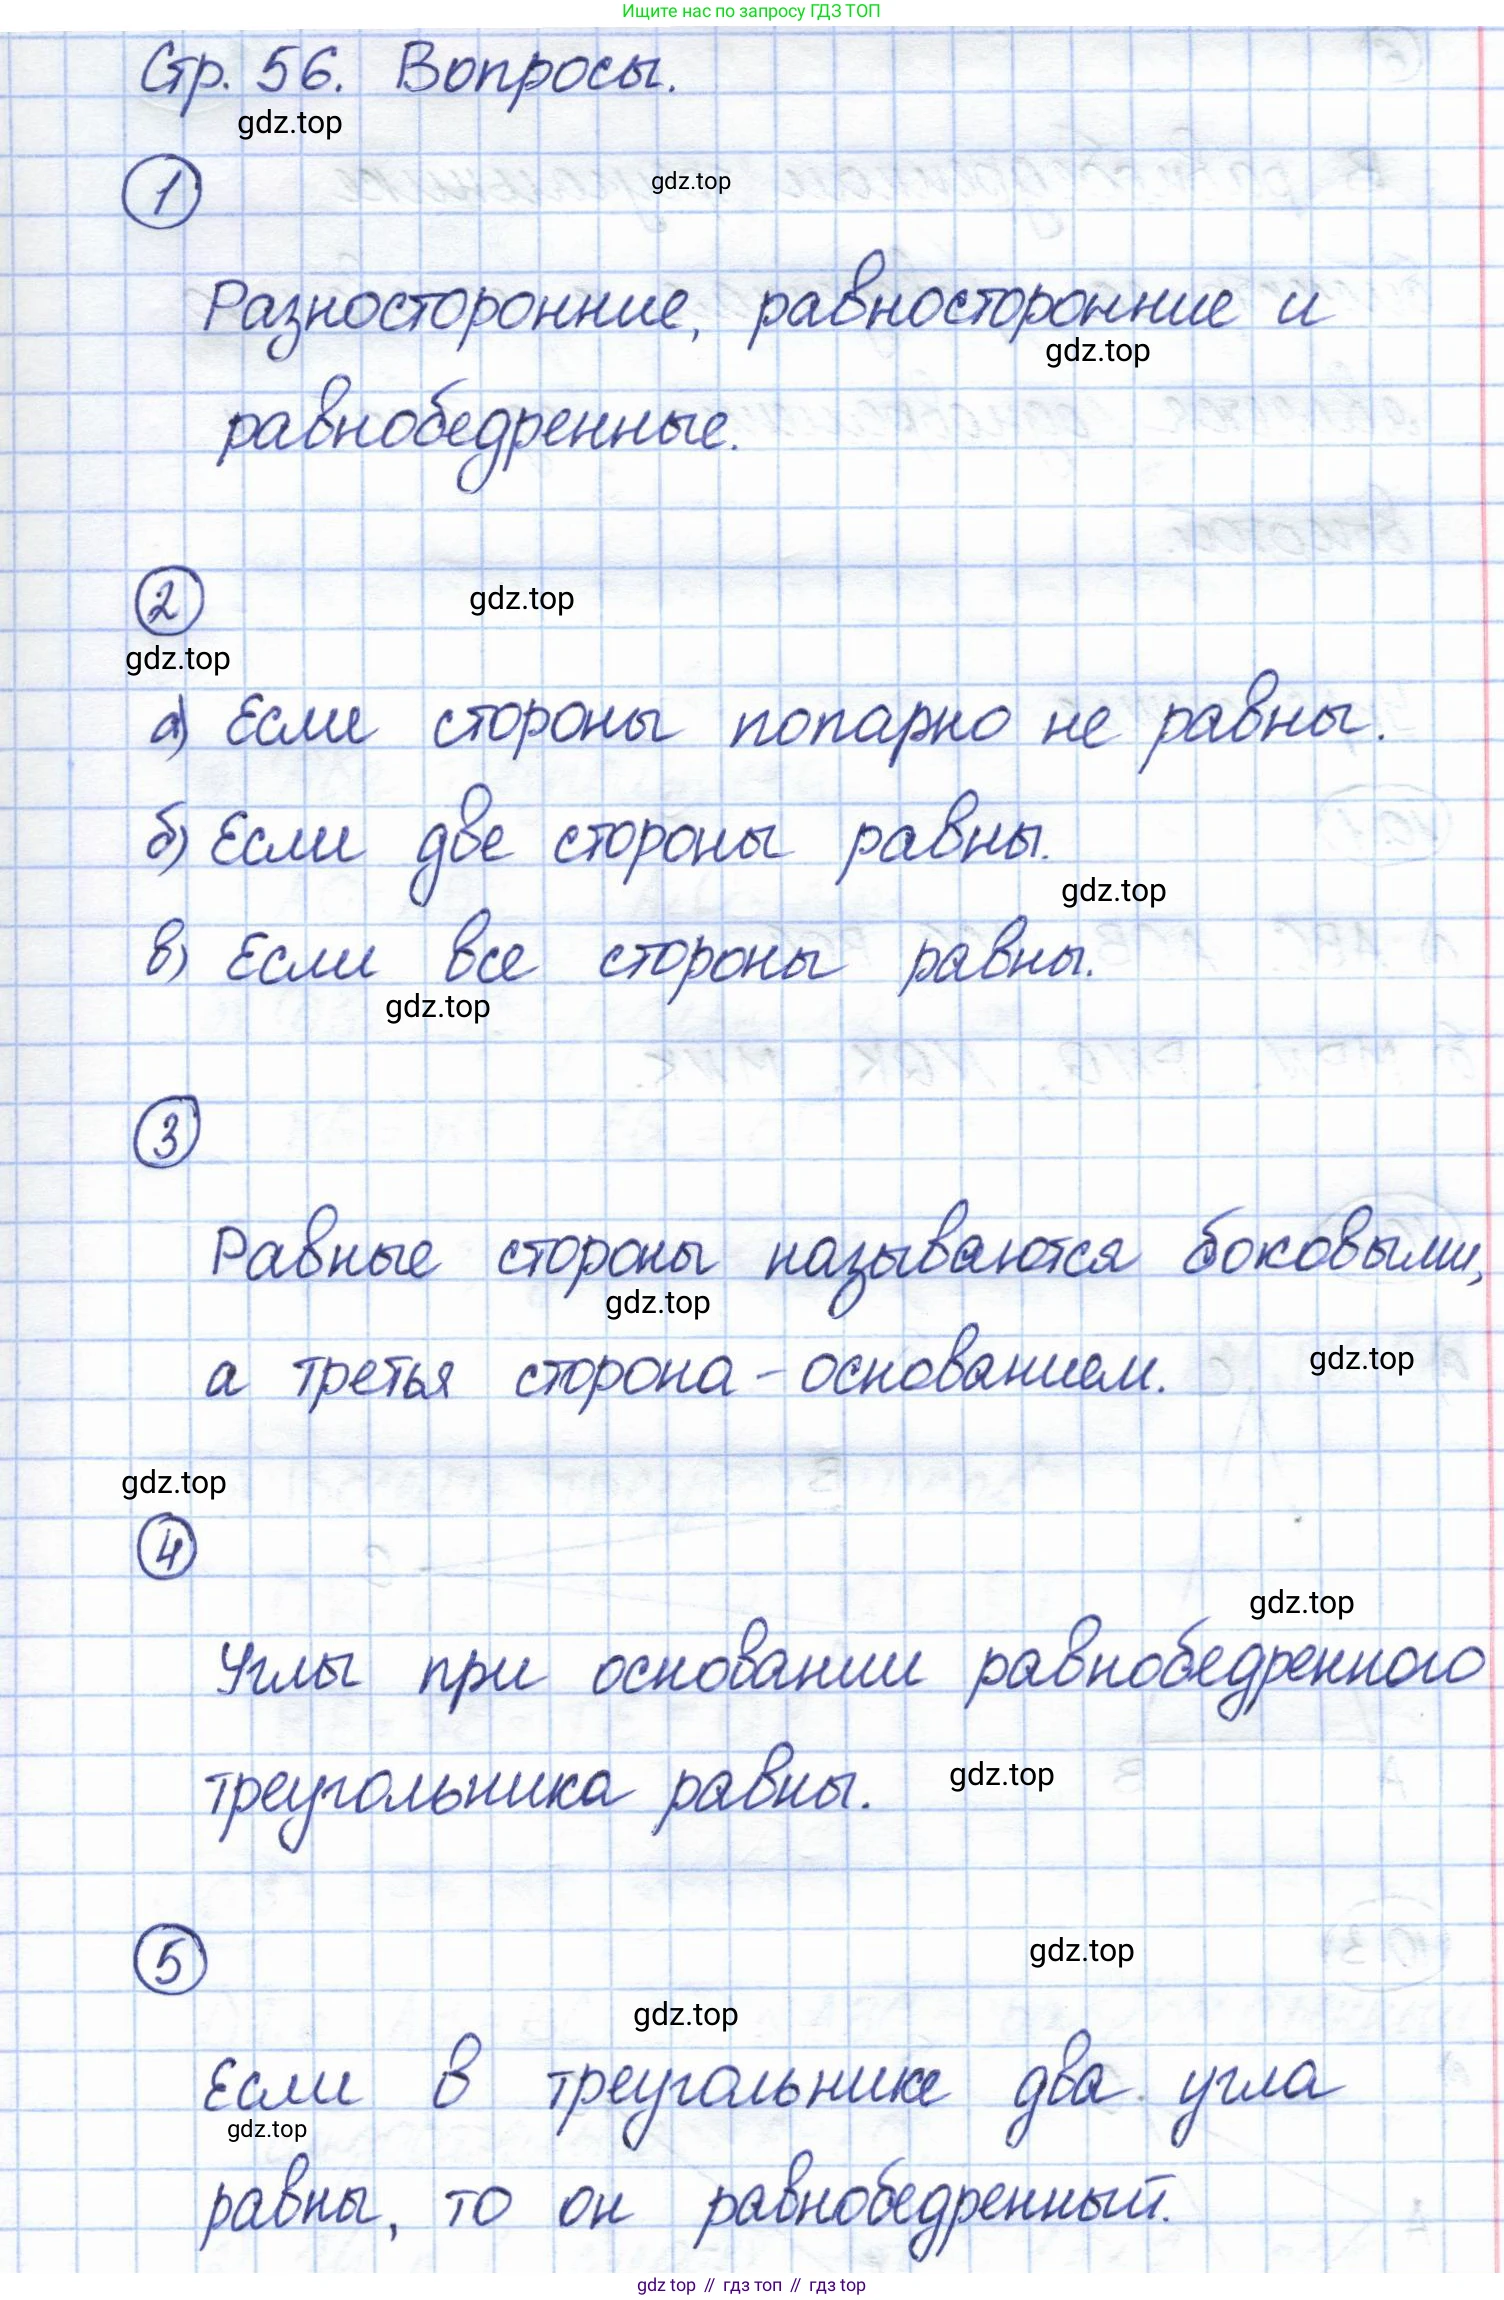 Ищите нас по запросу ГДЗ ТОП
Стр. 56. Вопросы.
gdz.top
1
gdz.top
Разносторонние, равносторонние и
gdz.top
равнобедренные.
2
gdz.top
gdz.top
а) Если стороны попарно не равны.
б) Если две стороны равны.
gdz.top
в) Если все стороны равны.
gdz.top
3
Равные стороны называются боковыми,
gdz.top
а третья сторона - основанием.
gdz.top
gdz.top
4
gdz.top
Углы при основании равнобедренного
треугольника равны.
gdz.top
5
gdz.top
gdz.top
Если в треугольнике два угла
gdz.top
равны, то он равнобедренный.
gdz top // гдз топ // гдз top